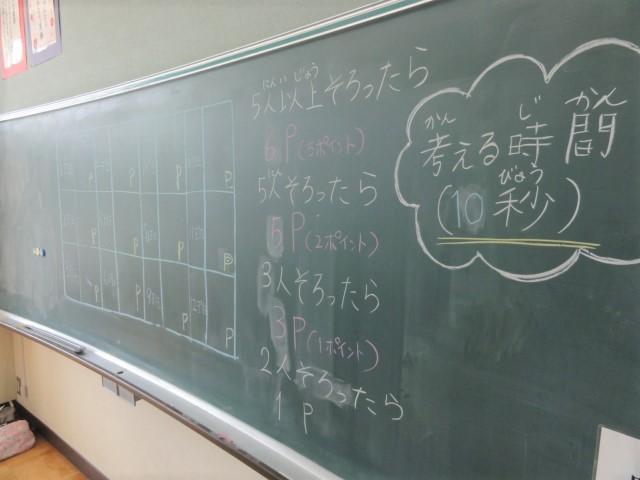 にんいじょう
5人以上そろったら
6P(3ポイント)
5人そろったら
5P(2ポイント)
3人そろったら
3P(1ポイント)
2人そろったら
1P
かん じ かん
考える時間
びょう
(10秒)
P P P P P
P P P P P
P P P P P